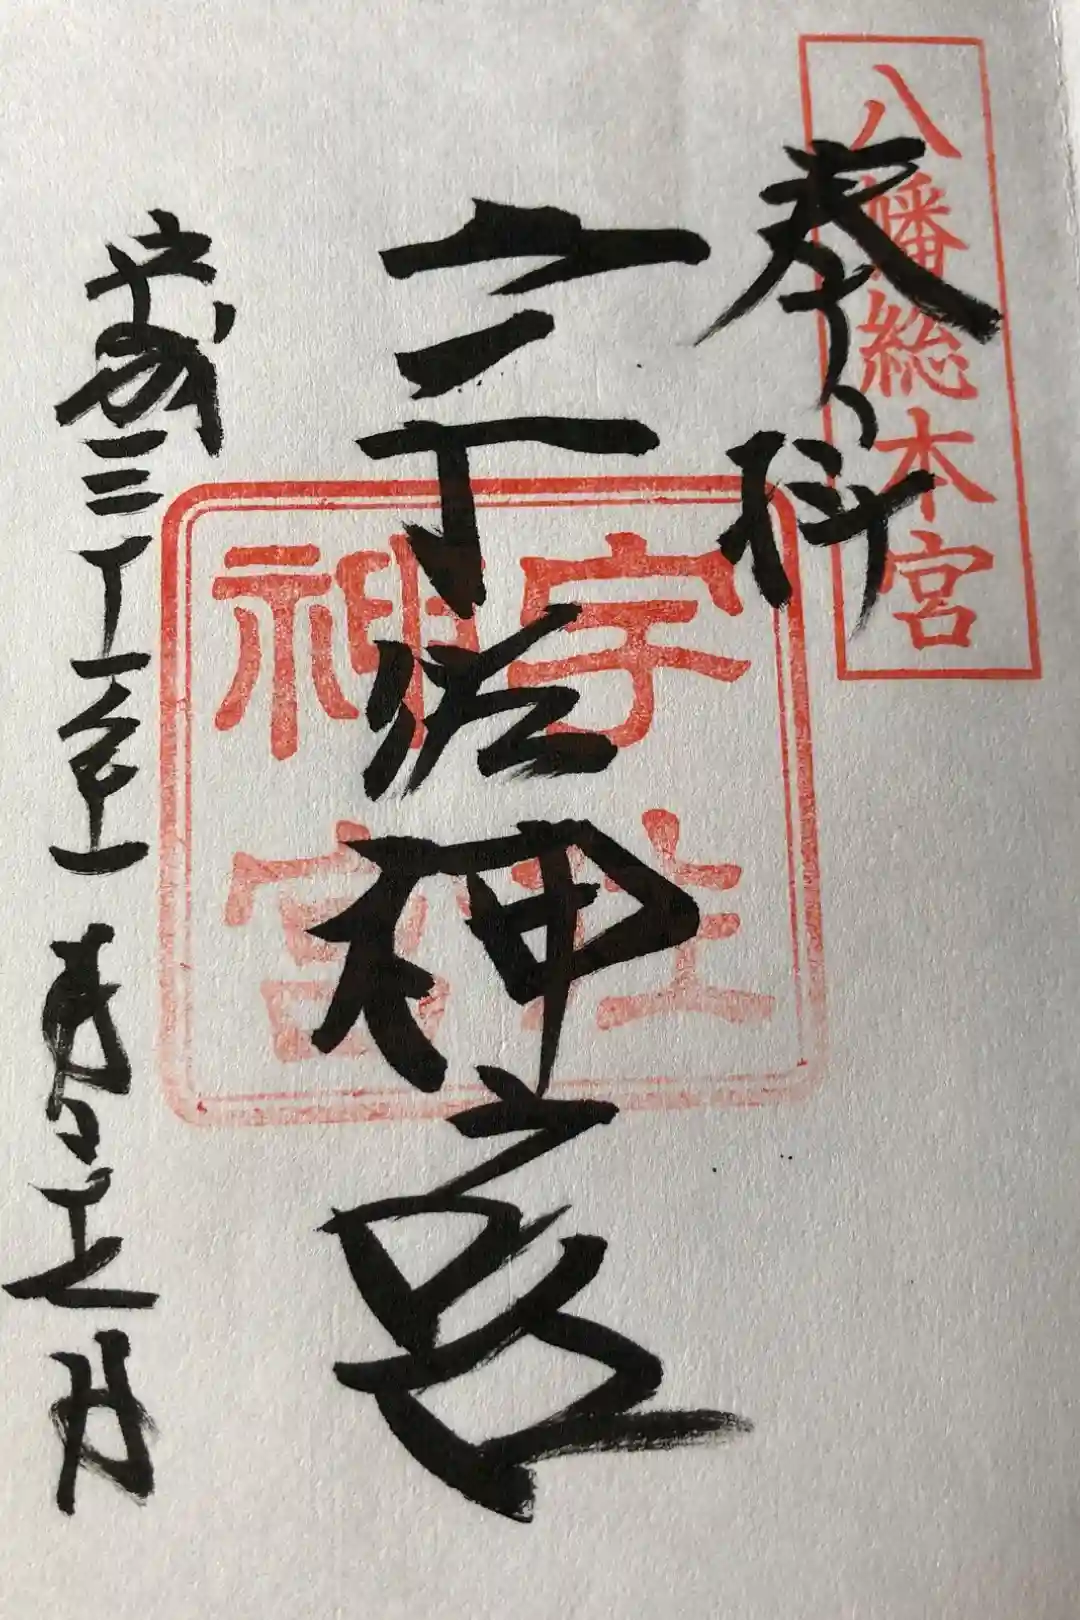 八幡総本宮
奉拝
宇佐神宮
宇佐神宮
平成三十一年